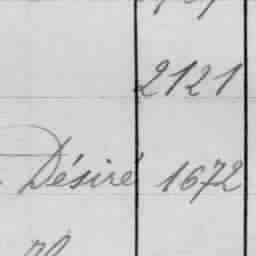 2121
Désiré 1672